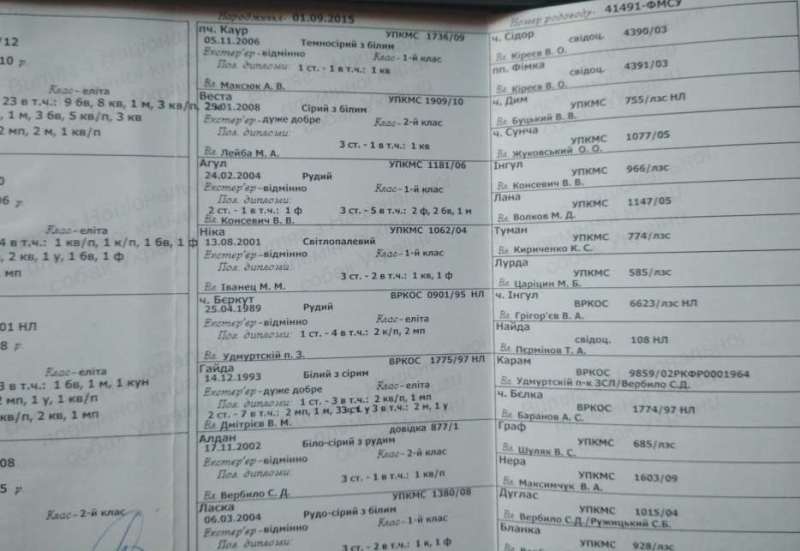 Народження: 01.09.2015
Номер родоводу: 41491-ФМСУ
/12
10 р
Клас - еліта
23 в т.ч.: 9 бв, 8 кв, 1 м, 3 кв/п, 2 у
, 1 м, 3 бв, 5 кв/п, 3 кв
2 мп, 2 м, 1 кв/п
0
06 р
Клас - еліта
4 в т.ч.: 1 кв/п, 1 к/п, 1 бв, 1 ф
, 2 кв, 1 у, 1 бв, 1 ф
мп
01 НЛ
8 р
Клас - еліта
3 в т.ч.: 1 бв, 1 м, 1 кун
2 мп, 1 у, 1 кв/п
кв/п, 2 кв, 1 мп
08
5 р
Клас - 2-й клас
пч. Каур УПКМС 1736/09
05.11.2006 Темносірий з білим
Екстер'єр - відмінно Клас - 1-й клас
Пол. дипломи: 1 ст. - 1 в т.ч.: 1 кв
Вл. Максюк А. В.
Веста УПКМС 1909/10
29.01.2008 Сірий з білим
Екстер'єр - дуже добре Клас - 2-й клас
Пол. дипломи: 3 ст. - 1 в т.ч.: 1 кв
Вл. Лейба М. А.
Агул УПКМС 1181/06
24.02.2004 Рудий
Екстер'єр - відмінно Клас - 1-й клас
Пол. дипломи:
2 ст. - 1 в т.ч.: 1 ф 3 ст. - 5 в т.ч.: 2 ф, 2 бв, 1 м
Вл. Консевич В. В.
Ніка УПКМС 1062/04
13.08.2001 Світлопалевий
Екстер'єр - відмінно Клас - 1-й клас
Пол. дипломи: 3 ст. - 2 в т.ч.: 1 кв, 1 ф
Вл. Іванец М. М.
ч. Бєркут ВРКОС 0901/95 НЛ
25.04.1989 Рудий
Екстер'єр - відмінно Клас - еліта
Пол. дипломи: 1 ст. - 4 в т.ч.: 2 к/п, 2 мп
Вл. Удмуртскій п. З.
Гайда ВРКОС 1775/97 НЛ
14.12.1993 Білий з сірим
Екстер'єр - дуже добре Клас - еліта
Пол. дипломи: 1 ст. - 3 в т.ч.: 2 кв/п, 1 мп
2 ст. - 7 в т.ч.: 2 мп, 1 м, 3 3 ст. - 3 в т.ч.: 2 м, 1 у
Вл. Дмитрієв В. М.
Алдан довідка 877/1
17.11.2002 Біло-сірий з рудим
Екстер'єр - відмінно Клас - 2-й клас
Пол. дипломи: 3 ст. - 1 в т.ч.: 1 кв/п
Вл. Вербило С. Д.
Ласка УПКМС 1380/08
06.03.2004 Рудо-сірий з білим
Екстер'єр - відмінно Клас - 1-й клас
Пол. дипломи: 3 ст. - 2 в т.ч.: 1 к, 1 ф
ч. Сідор
свідоц. 4390/03
Вл. Кіреєв В. О.
пп. Фімка
свідоц. 4391/03
Вл. Кіреєв В. О.
ч. Дим
УПКМС 755/лзс НЛ
Вл. Буцький В. В.
ч. Сунча
УПКМС 1077/05
Вл. Жуковський О. О.
Інгул
УПКМС 966/лзс
Вл. Консевич В. В.
Лана
УПКМС 1147/05
Вл. Волков М. Д.
Туман
УПКМС 774/лзс
Вл. Кириченко К. С.
Лурда
УПКМС 585/лзс
Вл. Царіцин М. Б.
ч. Інгул
ВРКОС 6623/лзс НЛ
Вл. Грігор'єв В. А.
Найда
свідоц. 108 НЛ
Вл. Пєрмінов Т. А.
Карам
ВРКОС 9859/02РКФР0001964
Вл. Удмуртский п-к ЗСЛ/Вербило С.Д.
ч. Бєлка
ВРКОС 1774/97 НЛ
Вл. Баранов А. С.
Граф
УПКМС 685/лзс
Вл. Шуляк В. С.
Нера
УПКМС 1603/09
Вл. Максимчук В. А.
Дуглас
УПКМС 1015/04
Вл. Вербило С.Д./Ружицький С.Б.
Бланка
УПКМС 928/лзс